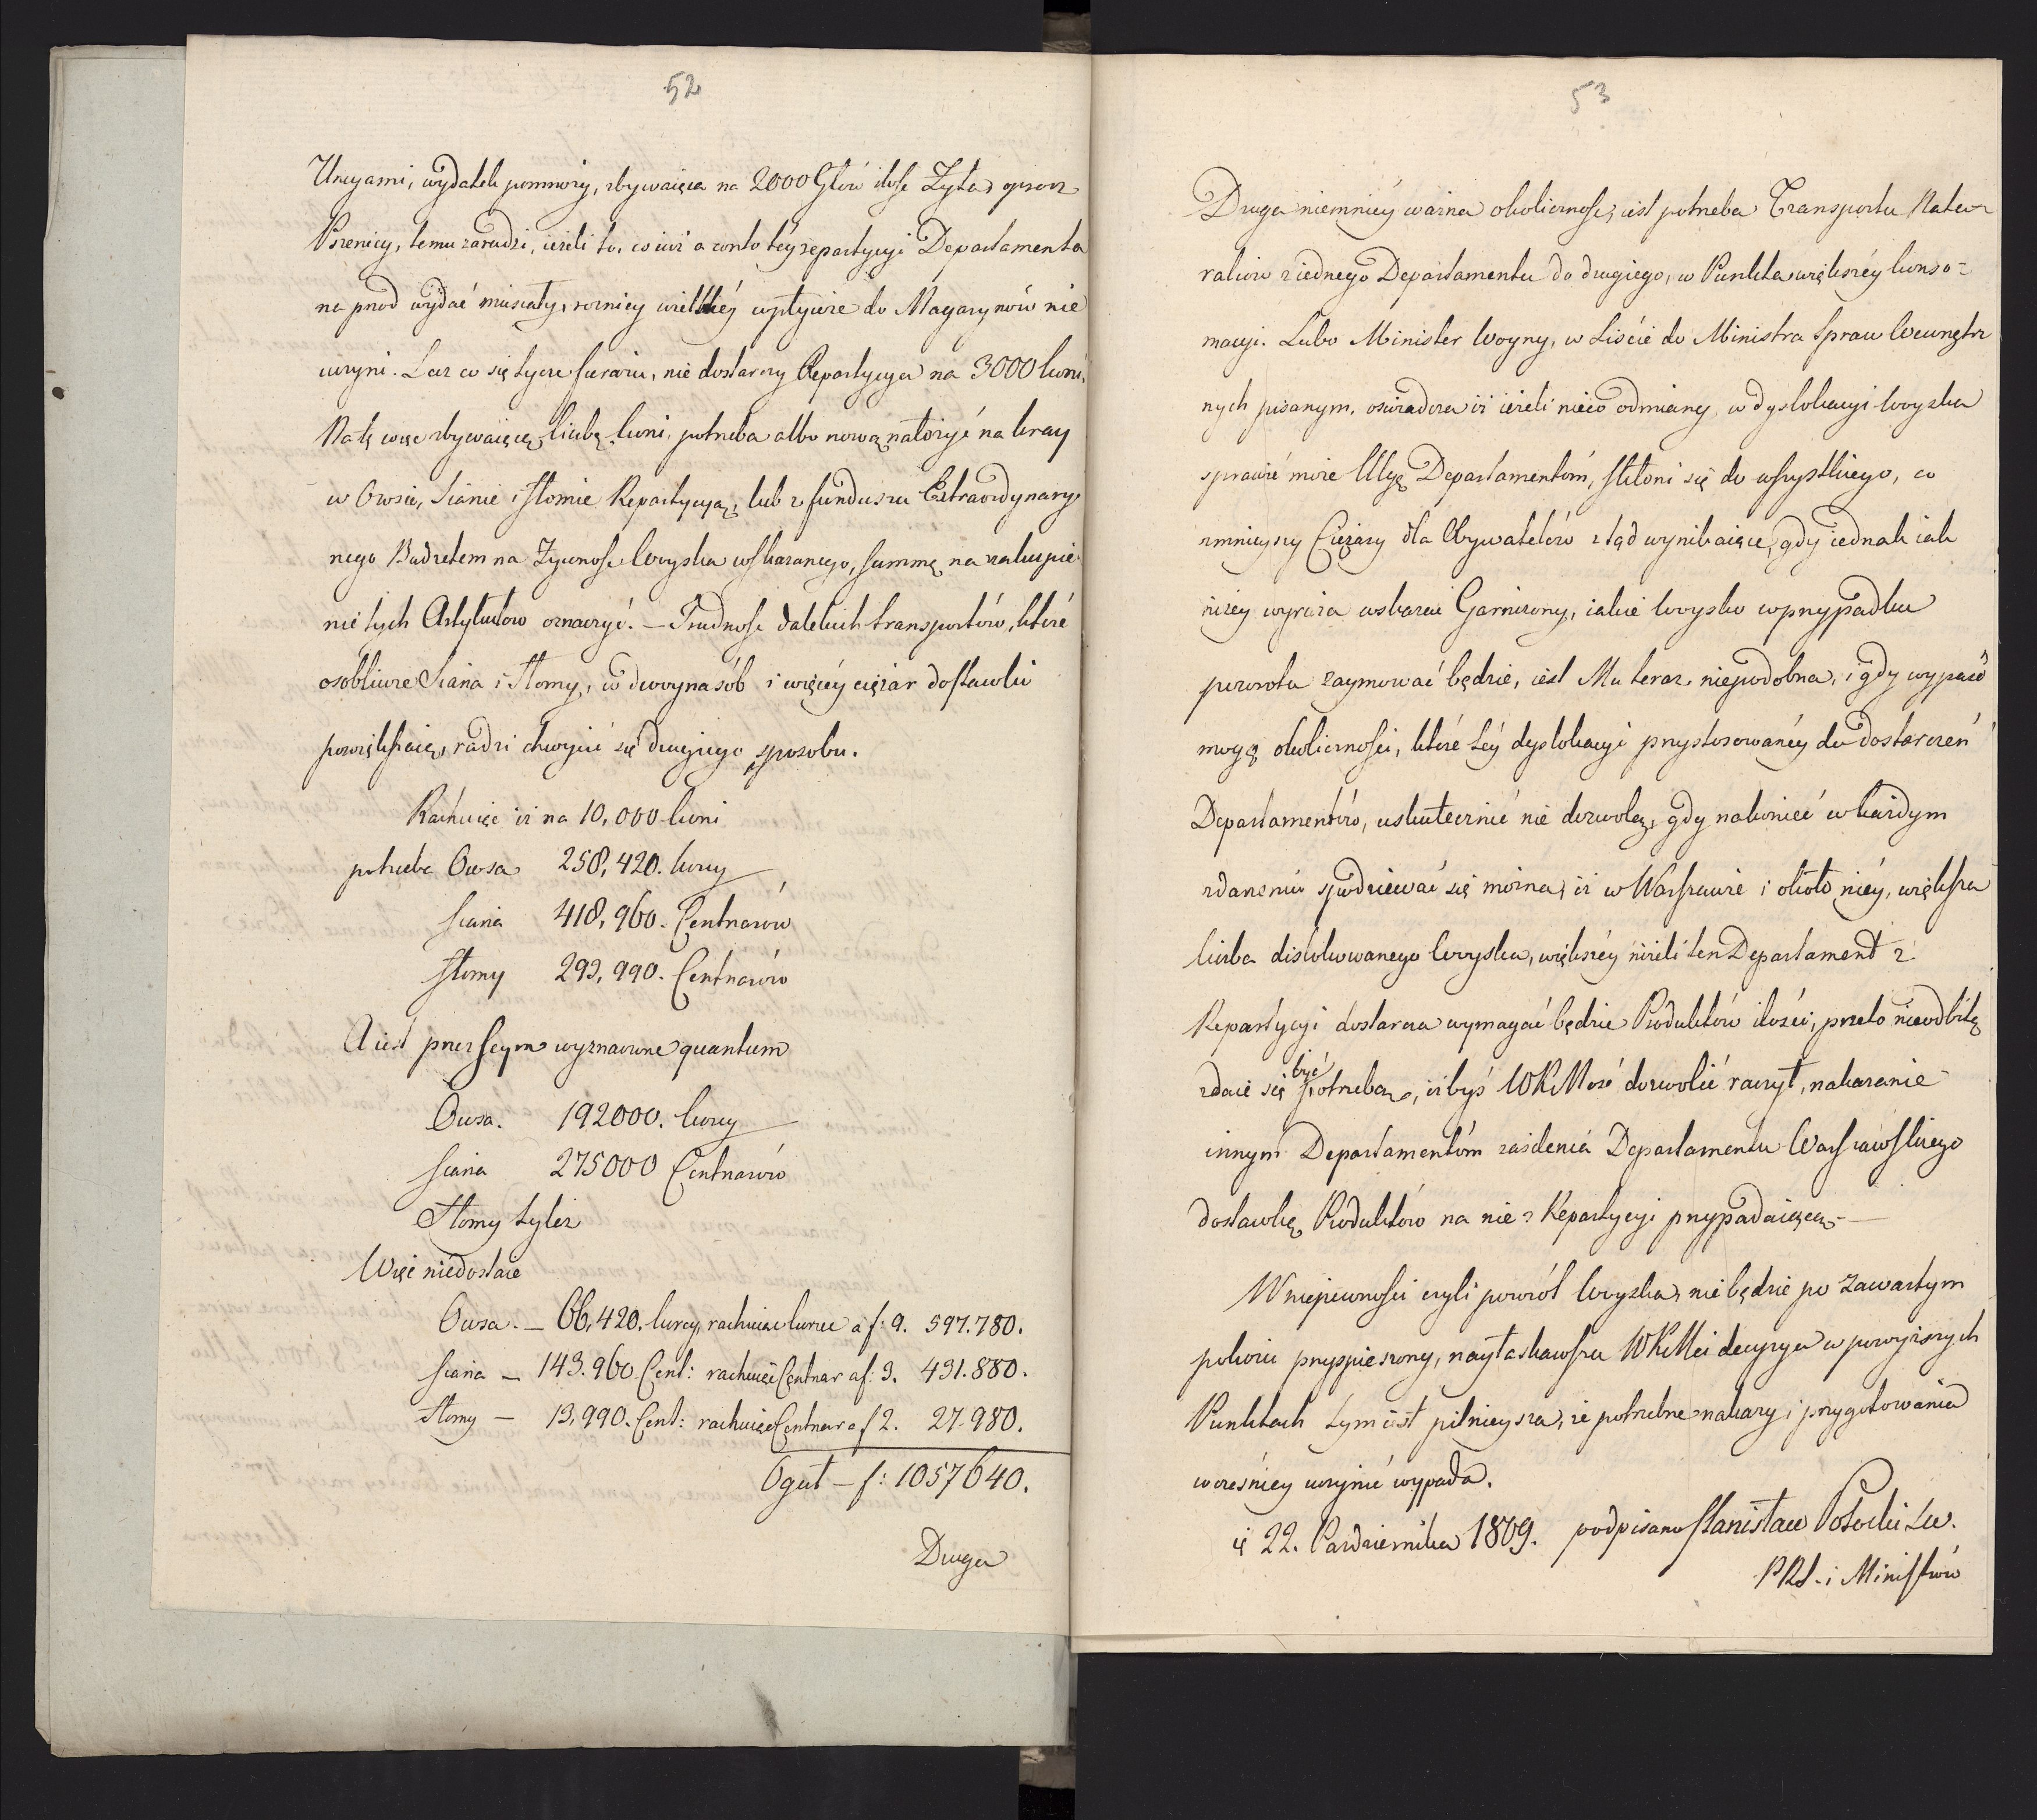 52
Uncyami, wydatek pomnoży, zbywaiąca na 2000 Głów ilość Żyta, oprocz
Pszenicy, temu zaradzi, ieżeli to, co iuż a conto tey repartycyi Departamenta
na przod wydać musiały, rożnicy wielkiéy wpływie do Magazynów nie
uczyni. Lecz co się tycze furażu, nie dostarczy Repartycya na 3000 koni,
Na tę więc zbywaiącą liczbę koni, potrzeba albo nową nałożyć na kray
w Owsie, Sianie i słomie Repartycyą, lub z funduszu Extraordynaryi
nego Budżetem na Żywność Woyska wskazanego, summę na zakupie
nie tych Artykułow oznaczyć. — Trudność dalekich transportów, które
osobliwie Siana i Słomy, w dwoynasób i więcéy ciężar dostawki
powiększaią, radzi chwycić się drugiego sposobu.
Rachuiąc iż na 10,000 koni
potrzeba Owsa 258,420. korcy
siana 418,960. Centnarów
słomy 293,990. Centnarów
A iest przez Seym wyznaczone quantum
Owsa. 192000. korcy
siana 275000 Centnarów
Słomy tyleż
Więc niedostaie
Owsa. — 66,420. korcy, rachuiąc korzec a f: 9. 597.780.
siana — 143.960 Cent: rachuiąc Centnar a f: 3. 431.880.
Słomy — 13,990. Cent: rachuiąc Centnar a f 2. 27.980.
Oguł — f: 1057640.
Druga
53
Druga niemniéy ważna okoliczność, iest potrzeba Transportu Natu-
raliow z iednego Departamentu do drugiego, w Punkta większéy konso=
macyi. Lubo Minister Woyny, w Liście do Ministra Spraw Wewnętrz
nych pisanym, oświadcza iż ieżeli nieco odmiany w dyslokacyi Woyska
sprawić może Ulgę Departamentóm, skłoni się do wszystkiego, co
zmnieyszy Ciężary dla Obywatelów ztąd wynikaiące, gdy iednak iak
niżey wyraża wskazać Garnizony, iakie Woysko w przypadku
powrotu zaymować będzie, iest Mu teraz niepodobna, i gdy wypaść
mogą okoliczności, które téy dyslokacyi przystosowanéy do dostarczeń
Departamentów, uskutecznić nie dozwolą, gdy nakoniec w każdym
zdarzeniu spodziewać się można, iż w Warszawie i około niéy, większa
liczba dislokowanego Woyska, większéy niżeli ten Departament z
Repartycyi dostarcza wymagać będzie Produktów ilości, przeto nieodbitą
zdaie się być potrzeba, iżbyś WKMość dozwolić raczył, nakazanie
innym Departamentóm zasilenia Departamentu Warszawskiego
dostawką Produktów na nie z Repartycyi przypadaiącą. —
W niepewności czyli powrót Woyska, nie będzie po zawartym
pokoiu przyspieszony, nayłaskawsza WKMci decyzya w powyższych
Punktach tym iest pilnieysza, że potrzebne nakazy i przygotowania
wcześniey uczynić wypada.
22. Pazdziernika 1809. podpisano Stanisław Potocki
PRS. i Ministrów